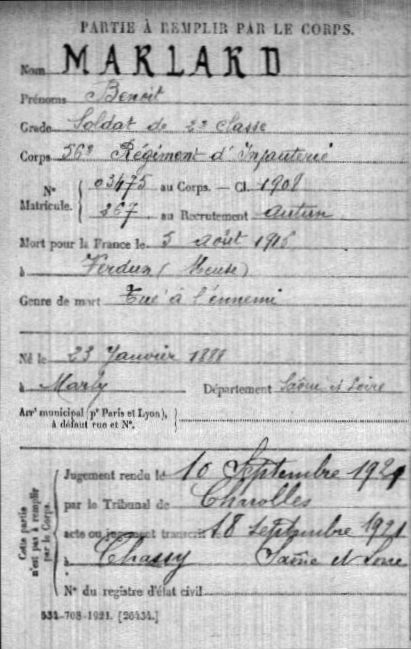 PARTIE À REMPLIR PAR LE CORPS.
Nom MARLARD
Prénoms Benoit
Grade Soldat de 2e Classe
Corps 56e Régiment d'Infanterie
N° Matricule. { 03475 au Corps. — Cl. 1908
267 au Recrutement Autun
Mort pour la France le 5 août 1916
à Verdun (Meuse)
Genre de mort Tué à l'ennemi
Né le 23 Janvier 1888
à Marly Département Saône et Loire
Arrt municipal (pr Paris et Lyon), à défaut rue et N°. }
Cette partie n'est pas à remplir par le Corps.
Jugement rendu le 10 Septembre 1921
par le Tribunal de Charolles
acte ou jugement transcrit 18 septembre 1921
à Chassy Saône et Loire
N° du registre d'état civil
534-708-1921. [26434.]